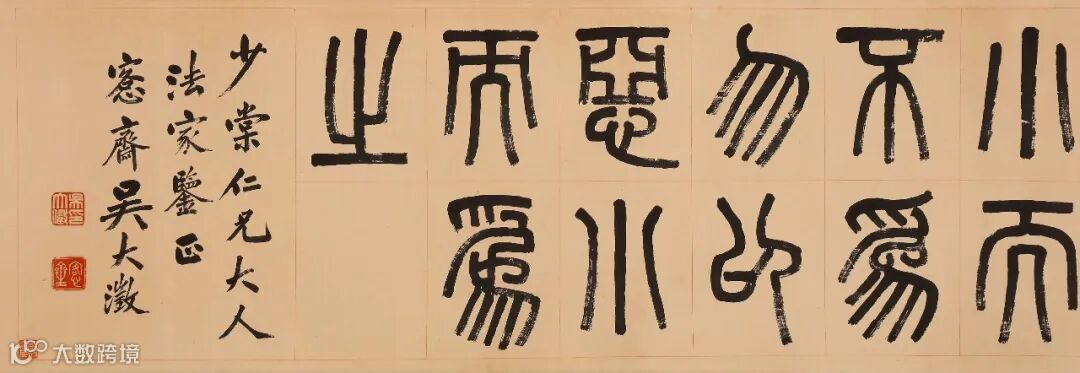 小而
不爲
勿以
惡小
而爲
之
少棠仁兄大人
法家鑒正
愙齋吳大澂
大数跨境